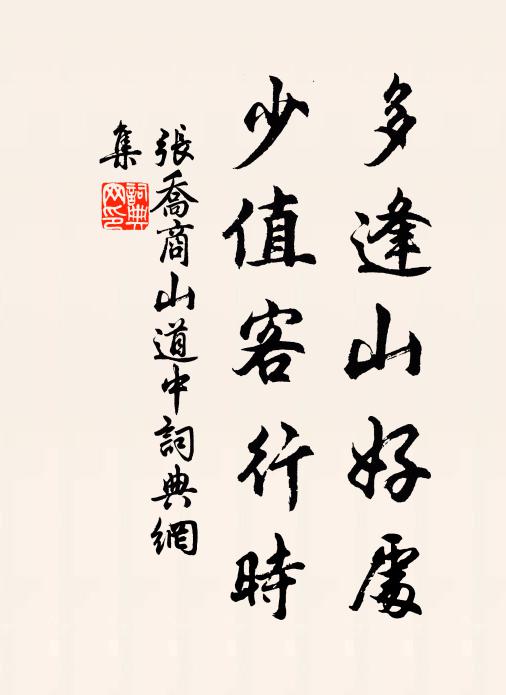 多逢山好處
少值客行時
張喬商山道中詞典網
集
詞典
网印